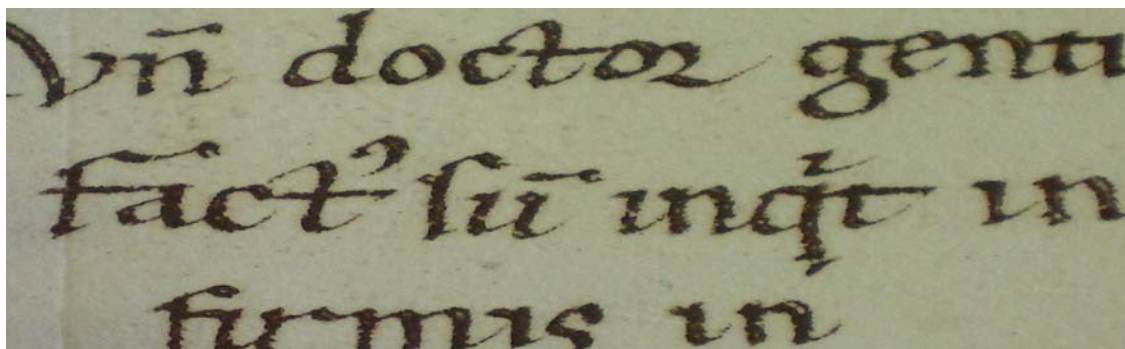 Vn̄ doctor genti
fact᾿ sū inqͥt in
firmis in